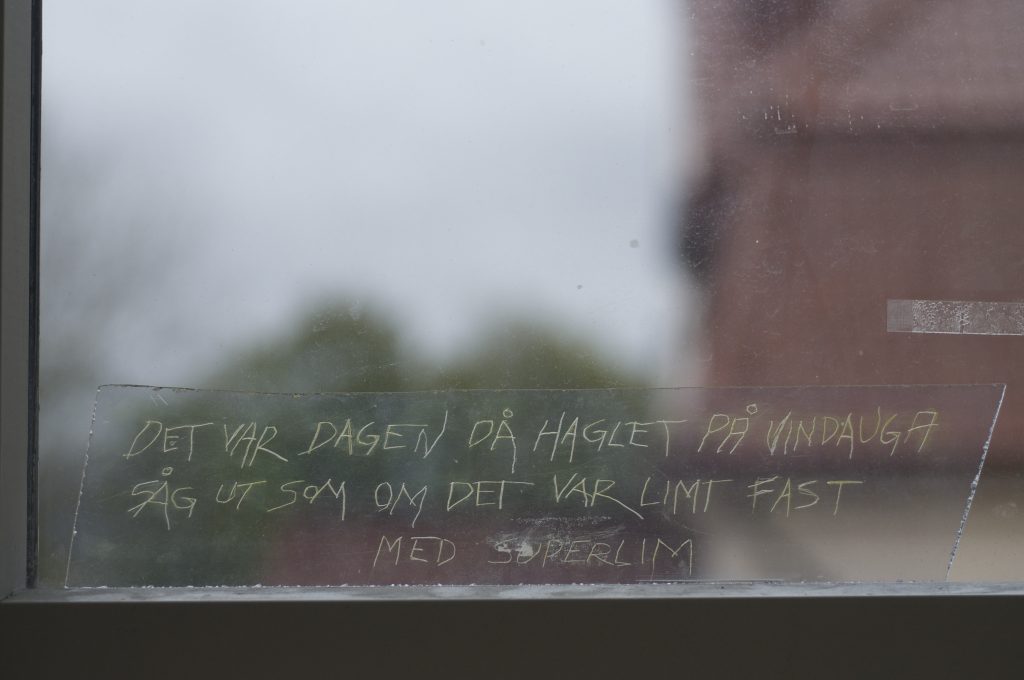 DET VAR DAGEN DÅ HAGLET PÅ VINDAUGA
SÅG UT SOM OM DET VAR LIMT FAST
MED SUPERLIM